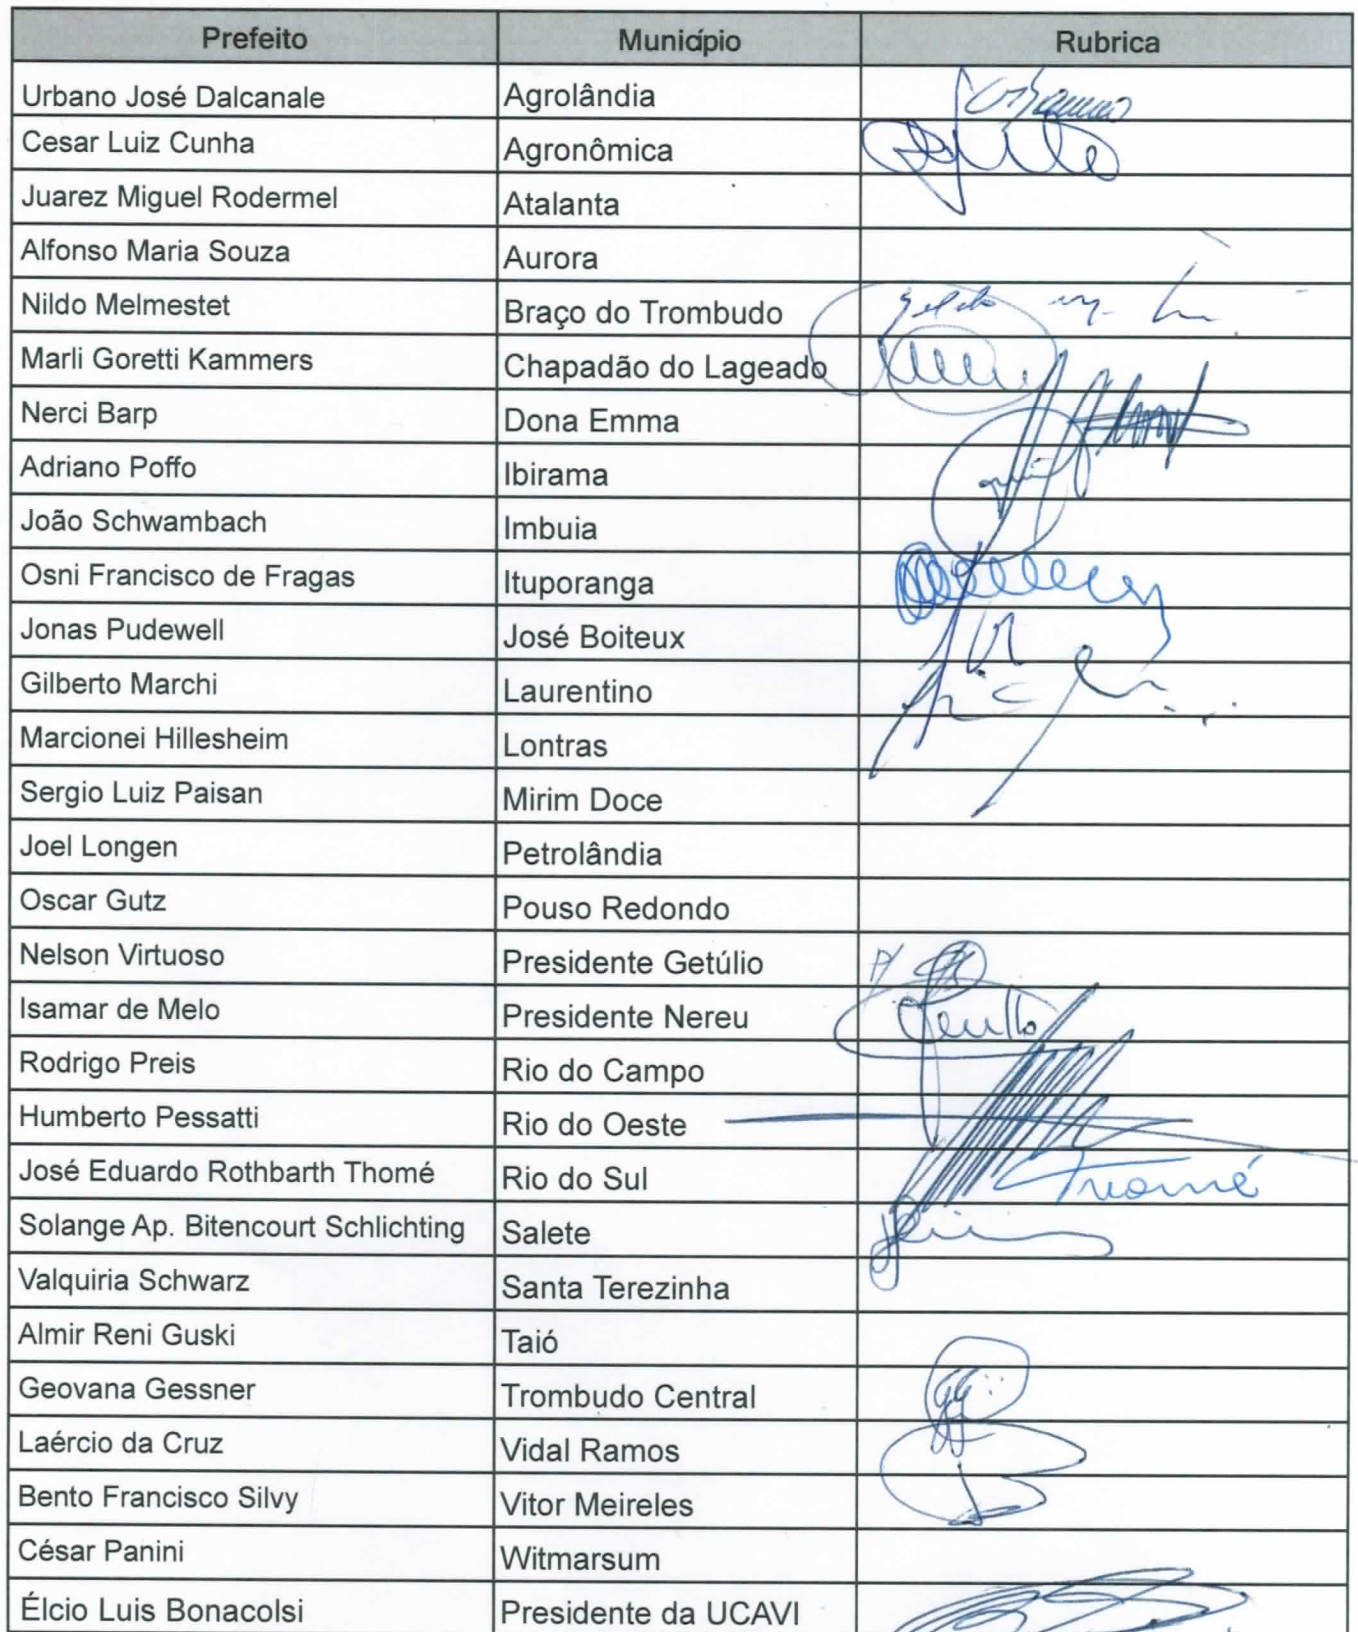 Prefeito Município Rubrica
Urbano José Dalcanale Agrolândia
Cesar Luiz Cunha Agronômica
Juarez Miguel Rodermel Atalanta
Alfonso Maria Souza Aurora
Nildo Melmestet Braço do Trombudo
Marli Goretti Kammers Chapadão do Lageado
Nerci Barp Dona Emma
Adriano Poffo Ibirama
João Schwambach Imbuia
Osni Francisco de Fragas Ituporanga
Jonas Pudewell José Boiteux
Gilberto Marchi Laurentino
Marcionei Hillesheim Lontras
Sergio Luiz Paisan Mirim Doce
Joel Longen Petrolândia
Oscar Gutz Pouso Redondo
Nelson Virtuoso Presidente Getúlio
Isamar de Melo Presidente Nereu
Rodrigo Preis Rio do Campo
Humberto Pessatti Rio do Oeste
José Eduardo Rothbarth Thomé Rio do Sul Thomé
Solange Ap. Bitencourt Schlichting Salete
Valquiria Schwarz Santa Terezinha
Almir Reni Guski Taió
Geovana Gessner Trombudo Central
Laércio da Cruz Vidal Ramos
Bento Francisco Silvy Vitor Meireles
César Panini Witmarsum
Élcio Luis Bonacolsi Presidente da UCAVI